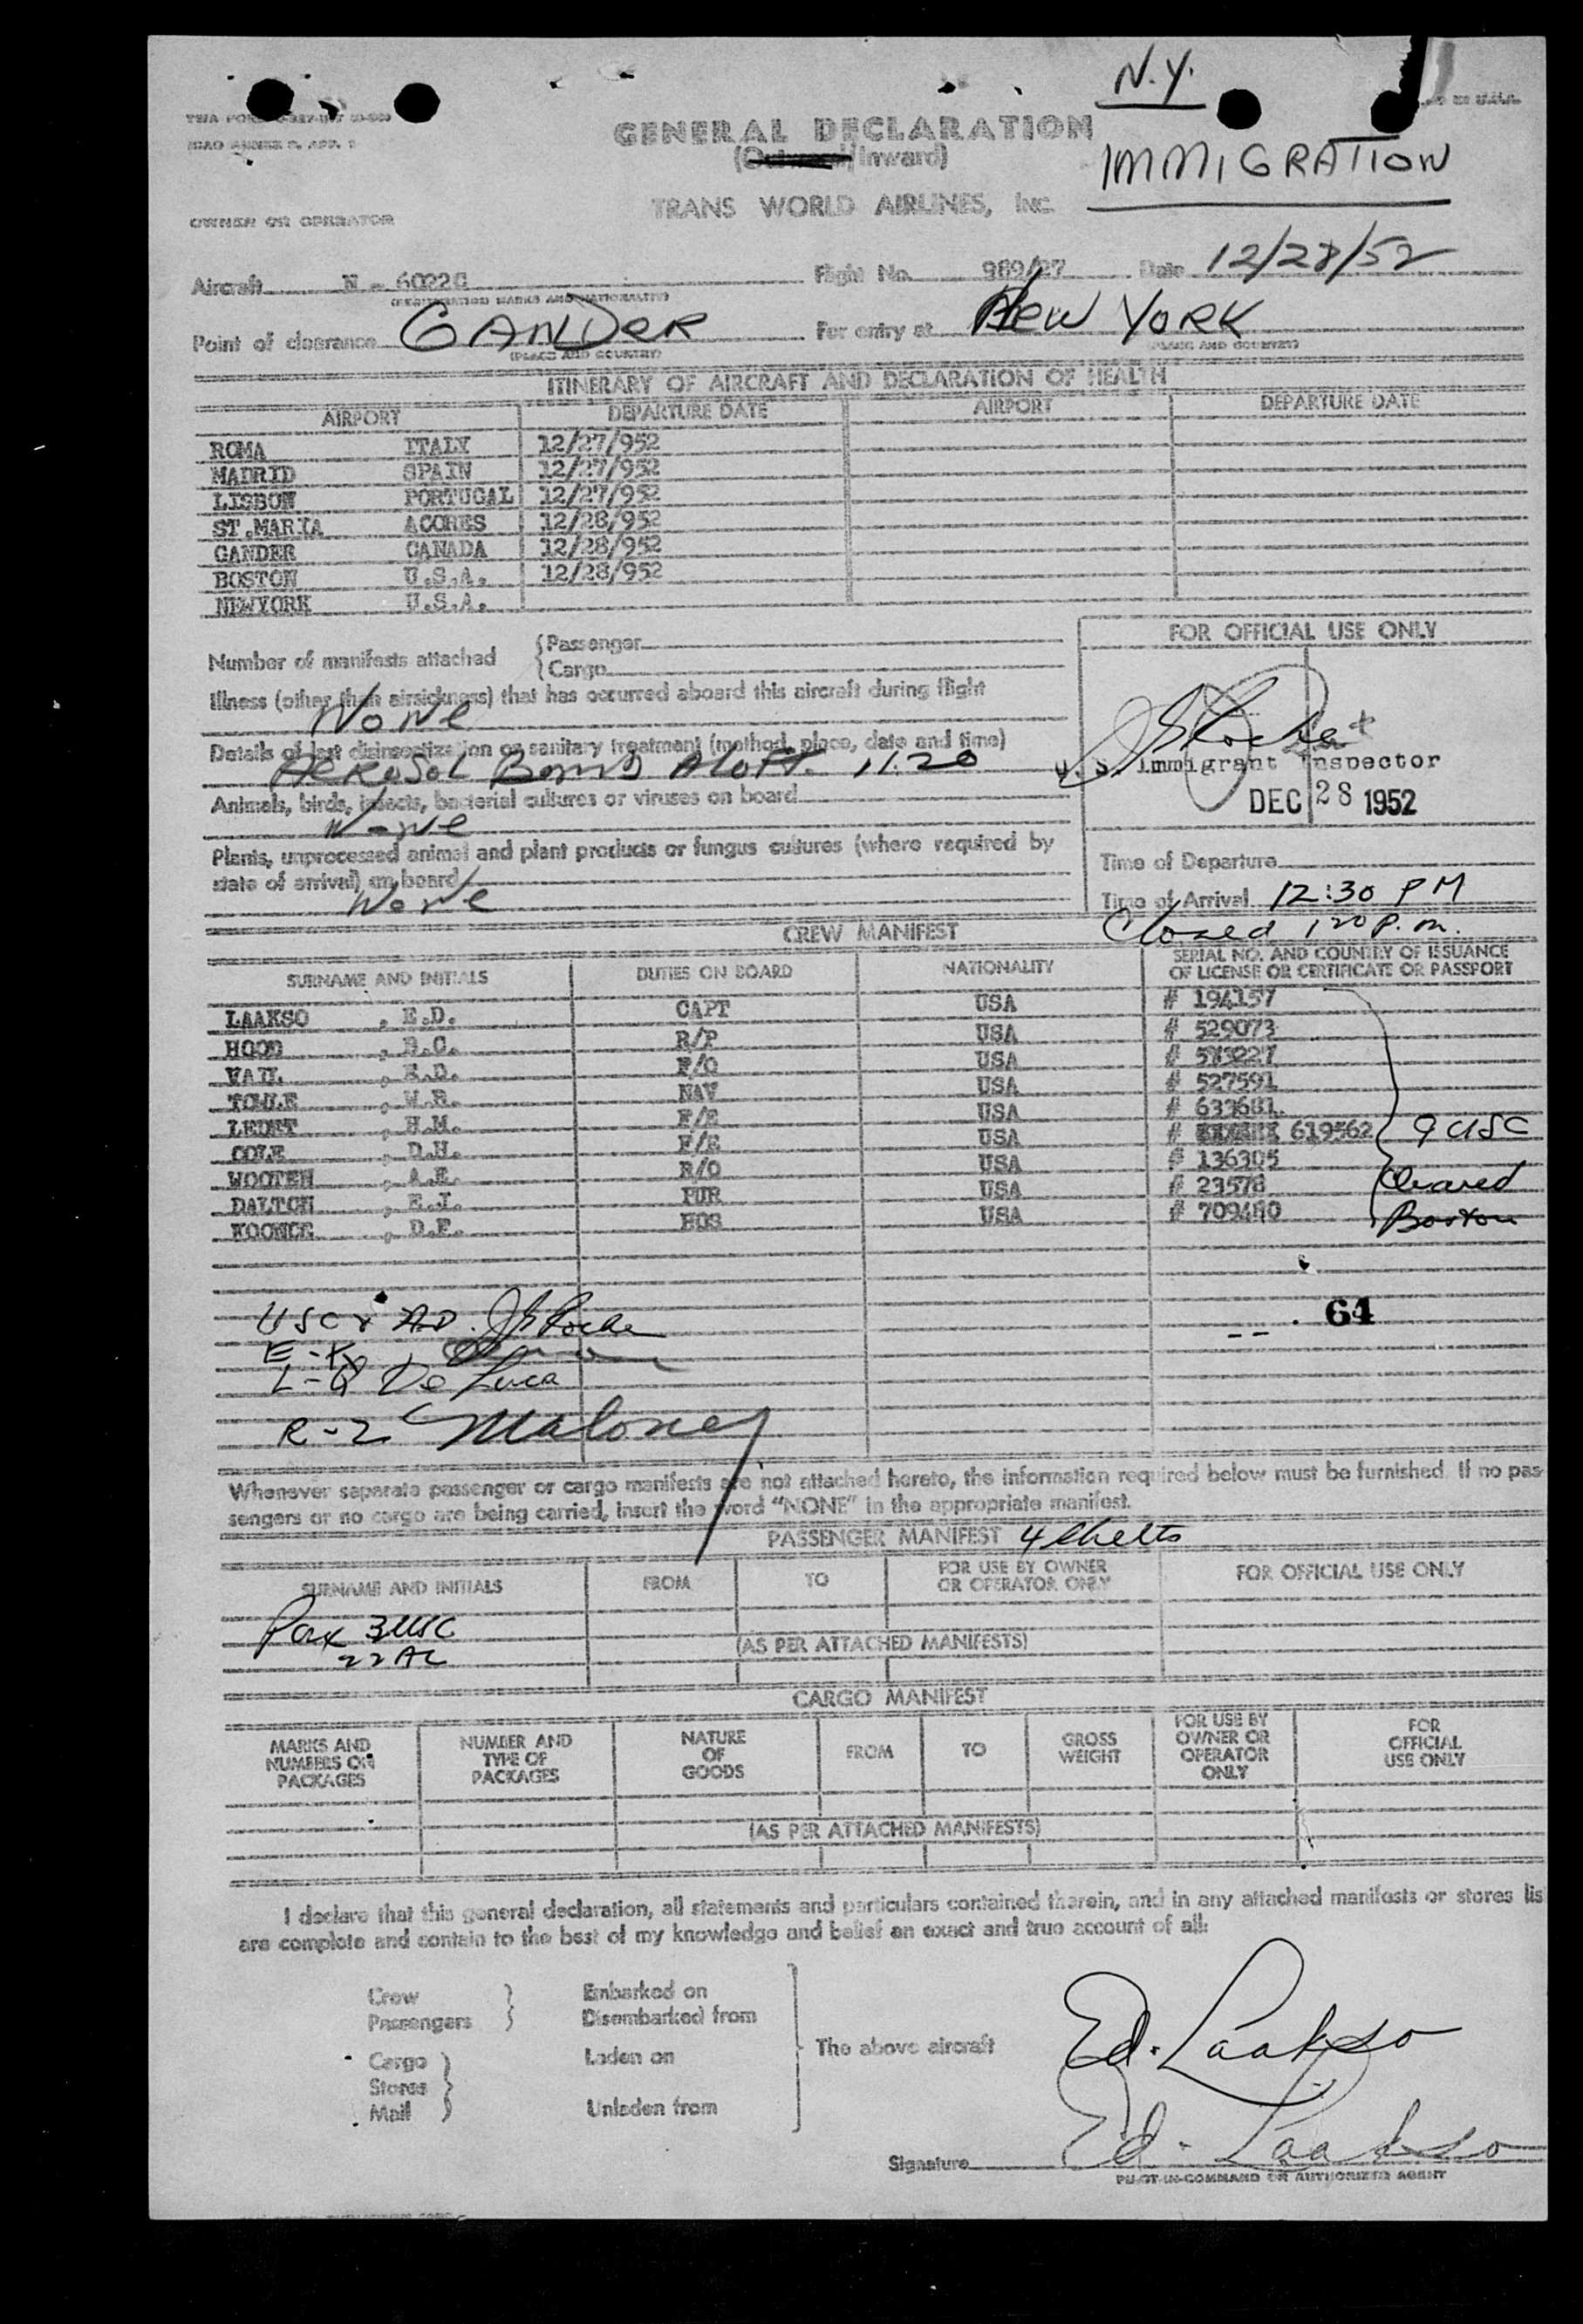 N.Y.
GENERAL DECLARATION
IMMIGRATION
(Outward/Inward)
TRANS WORLD AIRLINES, INC.
OWNER OR OPERATOR
Aircraft N - 6022C Flight No. 989/27 Date 12/28/52
(REGISTRATION MARKS AND NATIONALITY)
Point of clearance GANDER For entry at NEW YORK
(PLACE AND COUNTRY) (PLACE AND COUNTRY)
ITINERARY OF AIRCRAFT AND DECLARATION OF HEALTH
AIRPORT DEPARTURE DATE AIRPORT DEPARTURE DATE
ROMA ITALY 12/27/952
MADRID SPAIN 12/27/952
LISBON PORTUGAL 12/27/952
ST.MARIA ACORES 12/28/952
GANDER CANADA 12/28/952
BOSTON U.S.A. 12/28/952
NEWYORK U.S.A.
FOR OFFICIAL USE ONLY
Number of manifests attached
Passenger
Cargo
Illness (other than airsickness) that has occurred aboard this aircraft during flight
None
Details of last disinsectization or sanitary treatment (method, place, date and time)
AeRoSoL Bomb Aloft. 11:20
U. S. Immigrant Inspector
DEC 28 1952
Animals, birds, insects, bacterial cultures or viruses on board
None
Plants, unprocessed animal and plant products or fungus cultures (where required by
state of arrival) on board
None
Time of Departure
Time of Arrival 12:30 PM
Closed 120 P.m.
CREW MANIFEST
SURNAME AND INITIALS DUTIES ON BOARD NATIONALITY SERIAL NO. AND COUNTRY OF ISSUANCE
OF LICENSE OR CERTIFICATE OR PASSPORT
LAAKSO , E.D. CAPT USA # 194157
HOOD , B.C. R/P USA # 529073
VAIL , E.D. F/O USA
TOWLE , W.R. NAV USA # 527591
LEDET , H.M. F/E USA # 633681
COLE , D.H. F/E USA # 619562
WOOTEN , A.E. R/O USA # 136305
DALTON , E.J. PUR USA # 23578
KOONCE , D.F. HOS USA # 709480
9 USC
Cleared
Boston
64
USC & AD. J Roche
L-Q De Luca
R-2 Maloney
Whenever separate passenger or cargo manifests are not attached hereto, the information required below must be furnished. If no pas-
sengers or no cargo are being carried, insert the word "NONE" in the appropriate manifest.
PASSENGER MANIFEST 4 Sheets
SURNAME AND INITIALS FROM TO FOR USE BY OWNER
OR OPERATOR ONLY FOR OFFICIAL USE ONLY
Pax 3 USC
22 AL
(AS PER ATTACHED MANIFESTS)
CARGO MANIFEST
MARKS AND
NUMBERS ON
PACKAGES
NUMBER AND
TYPE OF
PACKAGES
NATURE
OF
GOODS
FROM
TO
GROSS
WEIGHT
FOR USE BY
OWNER OR
OPERATOR
ONLY
FOR
OFFICIAL
USE ONLY
(AS PER ATTACHED MANIFESTS)
I declare that this general declaration, all statements and particulars contained therein, and in any attached manifests or stores lis
are complete and contain to the best of my knowledge and belief an exact and true account of all:
Crew
Passengers
Embarked on
Disembarked from
Cargo
Stores
Mail
Laden on
Unladen from
The above aircraft
Ed. Laakso
Signature Ed. Laakso
PILOT-IN-COMMAND OR AUTHORIZED AGENT